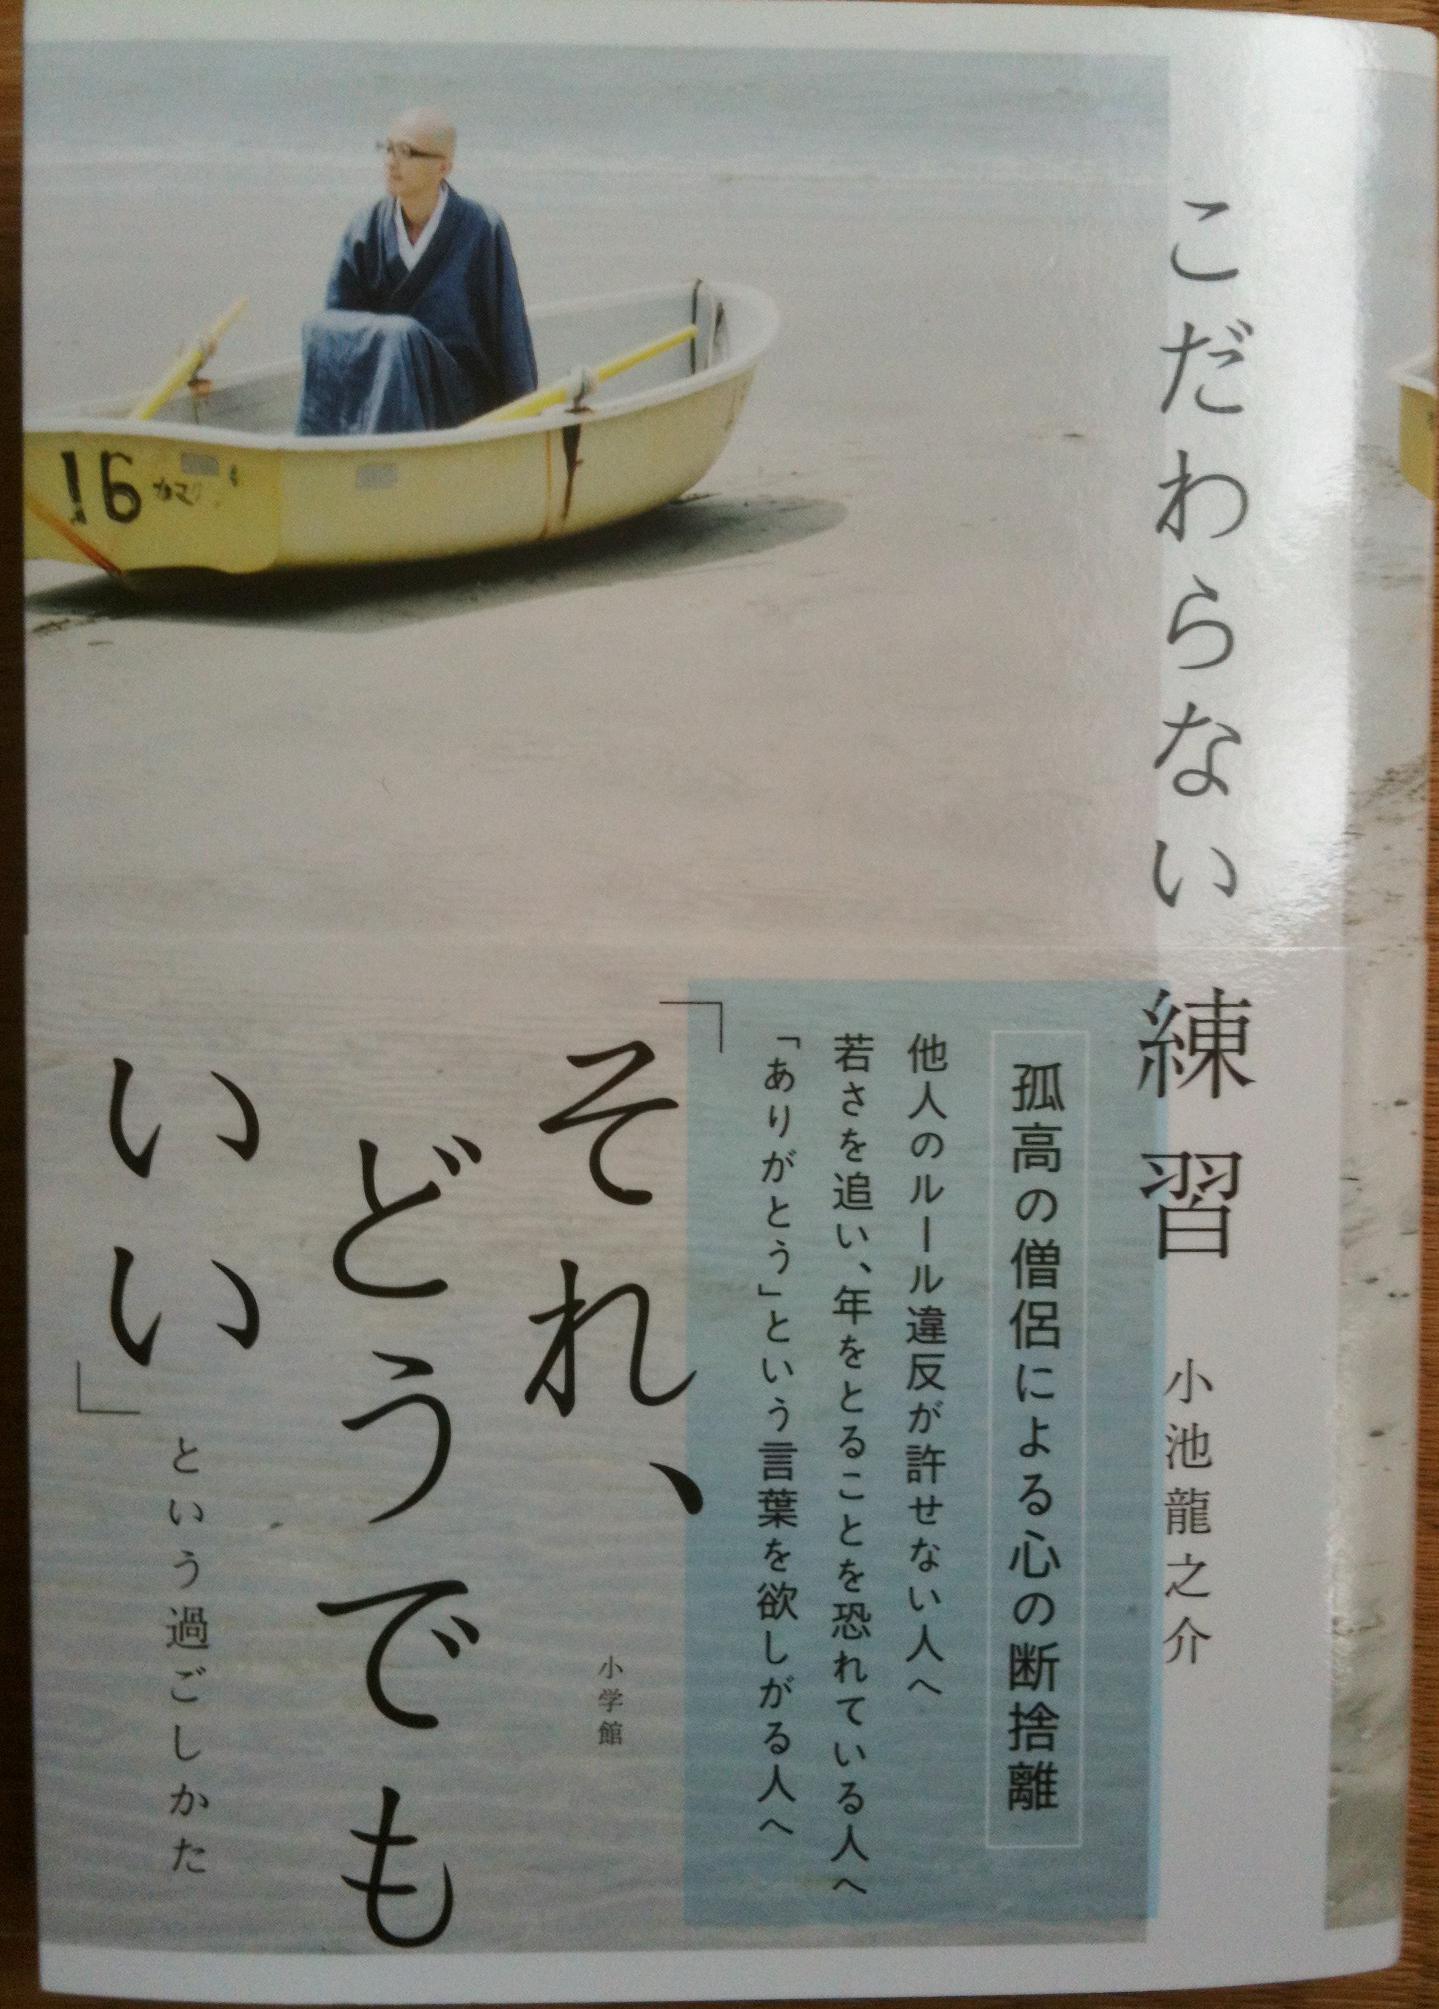 こだわらない練習
小池龍之介
孤高の僧侶による心の断捨離
他人のルール違反が許せない人へ
若さを追い、年をとることを恐れている人へ
「ありがとう」という言葉を欲しがる人へ
「それ、
どうでも
いい」
という過ごしかた
小学館
16